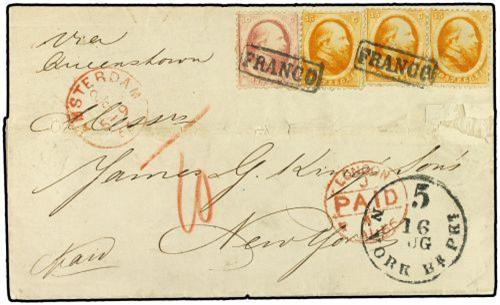 via
Queenstown
FRANCO
FRANCO
AMSTERDAM
Messrs
James G. King's Sons
10
LONDON
PAID
New York
paid
5
16
UG
N YORK BR PKT